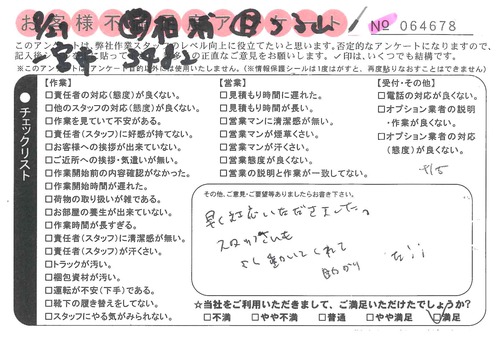 お客様不満足アンケート
No 064678
このアンケートは、弊社作業スタッフのレベル向上に役立てたいと思います。否定的なアンケートになりますので、
の正直なご意見をお願いします。✓印は、いくつでも結構です。
※このアンケートは
使用いたしません。(※情報保護シールは1度はがすと、再度貼りなおすことはできません)
●チェックリスト
【作業】
□責任者の対応(態度)が良くない。
□他のスタッフの対応(態度)が良くない。
□作業を見ていて不安がある。
□責任者(スタッフ)に好感が持てない。
□お客様への挨拶が出来ていない。
□ご近所への挨拶・気遣いが無い。
□作業開始前の内容確認がなかった。
□作業開始時間が遅れた。
□荷物の取り扱いが雑である。
□お部屋の養生が出来ていない。
□作業時間が長すぎる。
□責任者(スタッフ)に清潔感が無い。
□責任者(スタッフ)が汗くさい。
□トラックが汚い。
□梱包資材が汚い。
□運転が不安(下手)である。
□靴下の履き替えをしてない。
□スタッフにやる気がみられない。
【営業】
□見積もり時間に遅れた。
□見積もり時間が長い。
□営業マンに清潔感が無い。
□営業マンが煙草くさい。
□営業マンが汗くさい。
□営業態度が良くない。
□営業の説明と作業が一致してない。
【受付・その他】
□電話の対応が良くない。
□オプション業者の説明
・作業が良くない。
□オプション業者の対応
(態度)が良くない。
その他、ご意見・ご要望等ありましたらお書き下さい。
早く対応いただきました。
スタッフさんも
よく動いてくれて
助かりました!!
☆当社をご利用いただきまして、ご満足いただけたでしょうか?
□不満 □やや不満 □普通 □やや満足 □満足